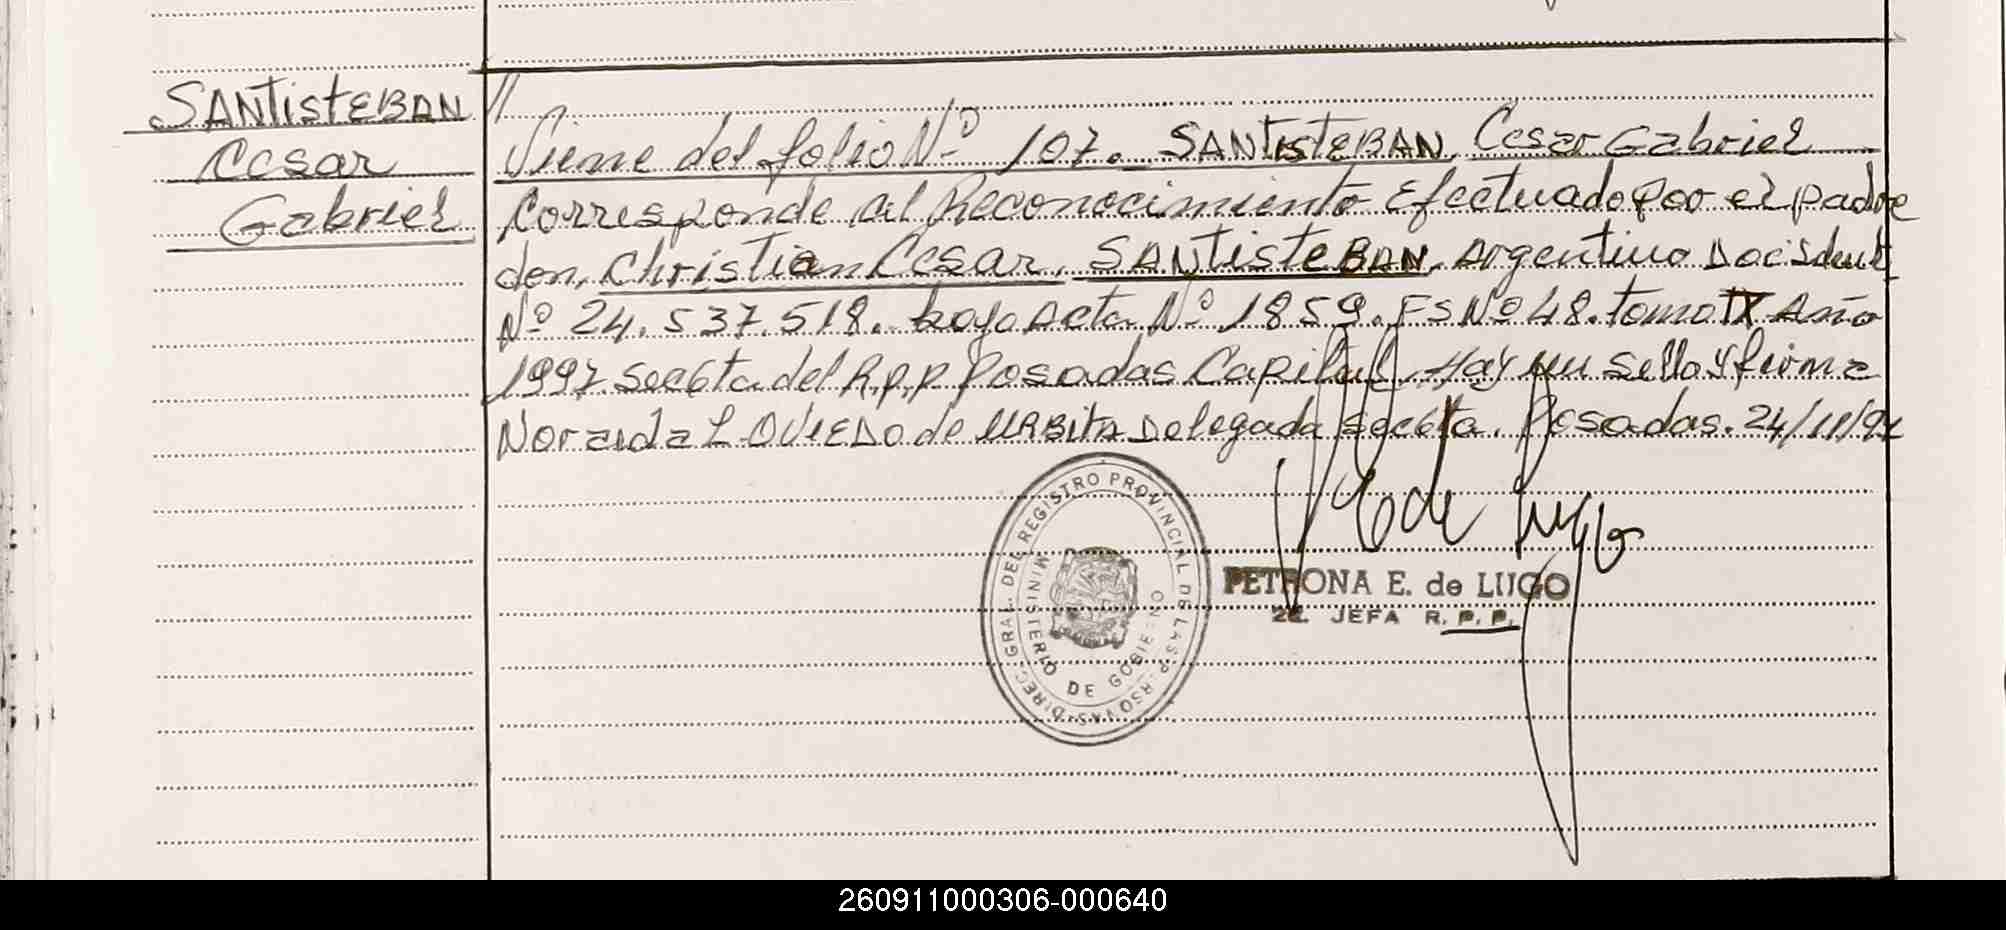 SANTisTEBAN
Cesar
Gabriel
Viene del folio Nº 107. SANTisTEBAN, Cesar Gabriel
Corresponde al Reconocimiento Efectuado por el padre
don, Christian Cesar, SANTisTEBAN, Argentino Doc Ident
Nº 24.537.518. bajo Acta Nº 1859. Fs Nº 48. tomo IX Año
1997 Sec 6ta del R.p.p Posadas Capital. Hay un sello y firma
Noraida L. OVIEDO de URBITA Delegada Sec 6ta. Posadas. 24/11/97
DIREC. GRAL. DEL REGISTRO PROVINCIAL DE LAS PERSONAS
MINISTERIO DE GOBIERNO
PETRONA E. de LUGO
JEFA R. P. P.
260911000306-000640